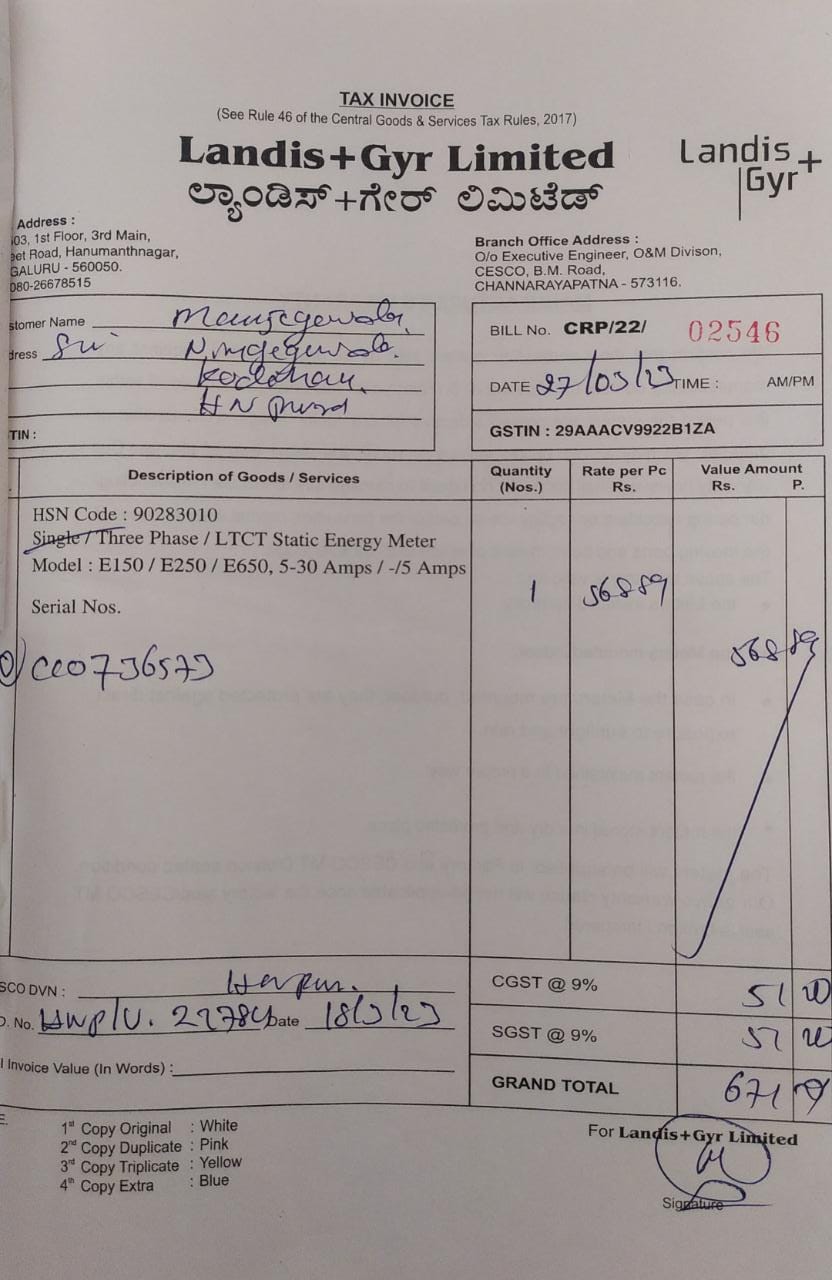 TAX INVOICE
(See Rule 46 of the Central Goods & Services Tax Rules, 2017)
Landis+Gyr Limited
ಲ್ಯಾಂಡಿಸ್+ಗೇರ್ ಲಿಮಿಟೆಡ್
Landis+
Gyr
Address :
03, 1st Floor, 3rd Main,
eet Road, Hanumanthnagar,
GALURU - 560050.
080-26678515
Branch Office Address :
O/o Executive Engineer, O&M Divison,
CESCO, B.M. Road,
CHANNARAYAPATNA - 573116.
stomer Name
dress
TIN :
BILL No. CRP/22/ 02546
DATE 27/03/23 TIME : AM/PM
GSTIN : 29AAACV9922B1ZA
Description of Goods / Services
Quantity (Nos.)
Rate per Pc Rs.
Value Amount Rs. P.
HSN Code : 90283010
Single / Three Phase / LTCT Static Energy Meter
Model : E150 / E250 / E650, 5-30 Amps / -/5 Amps
1 56889
Serial Nos.
56889
SCO DVN :
CGST @ 9% 51
O. No. Date 18/3/23
SGST @ 9% 51
l Invoice Value (In Words) :
GRAND TOTAL 671
E.
1st Copy Original : White
2nd Copy Duplicate : Pink
3rd Copy Triplicate : Yellow
4th Copy Extra : Blue
For Landis+Gyr Limited
Signature